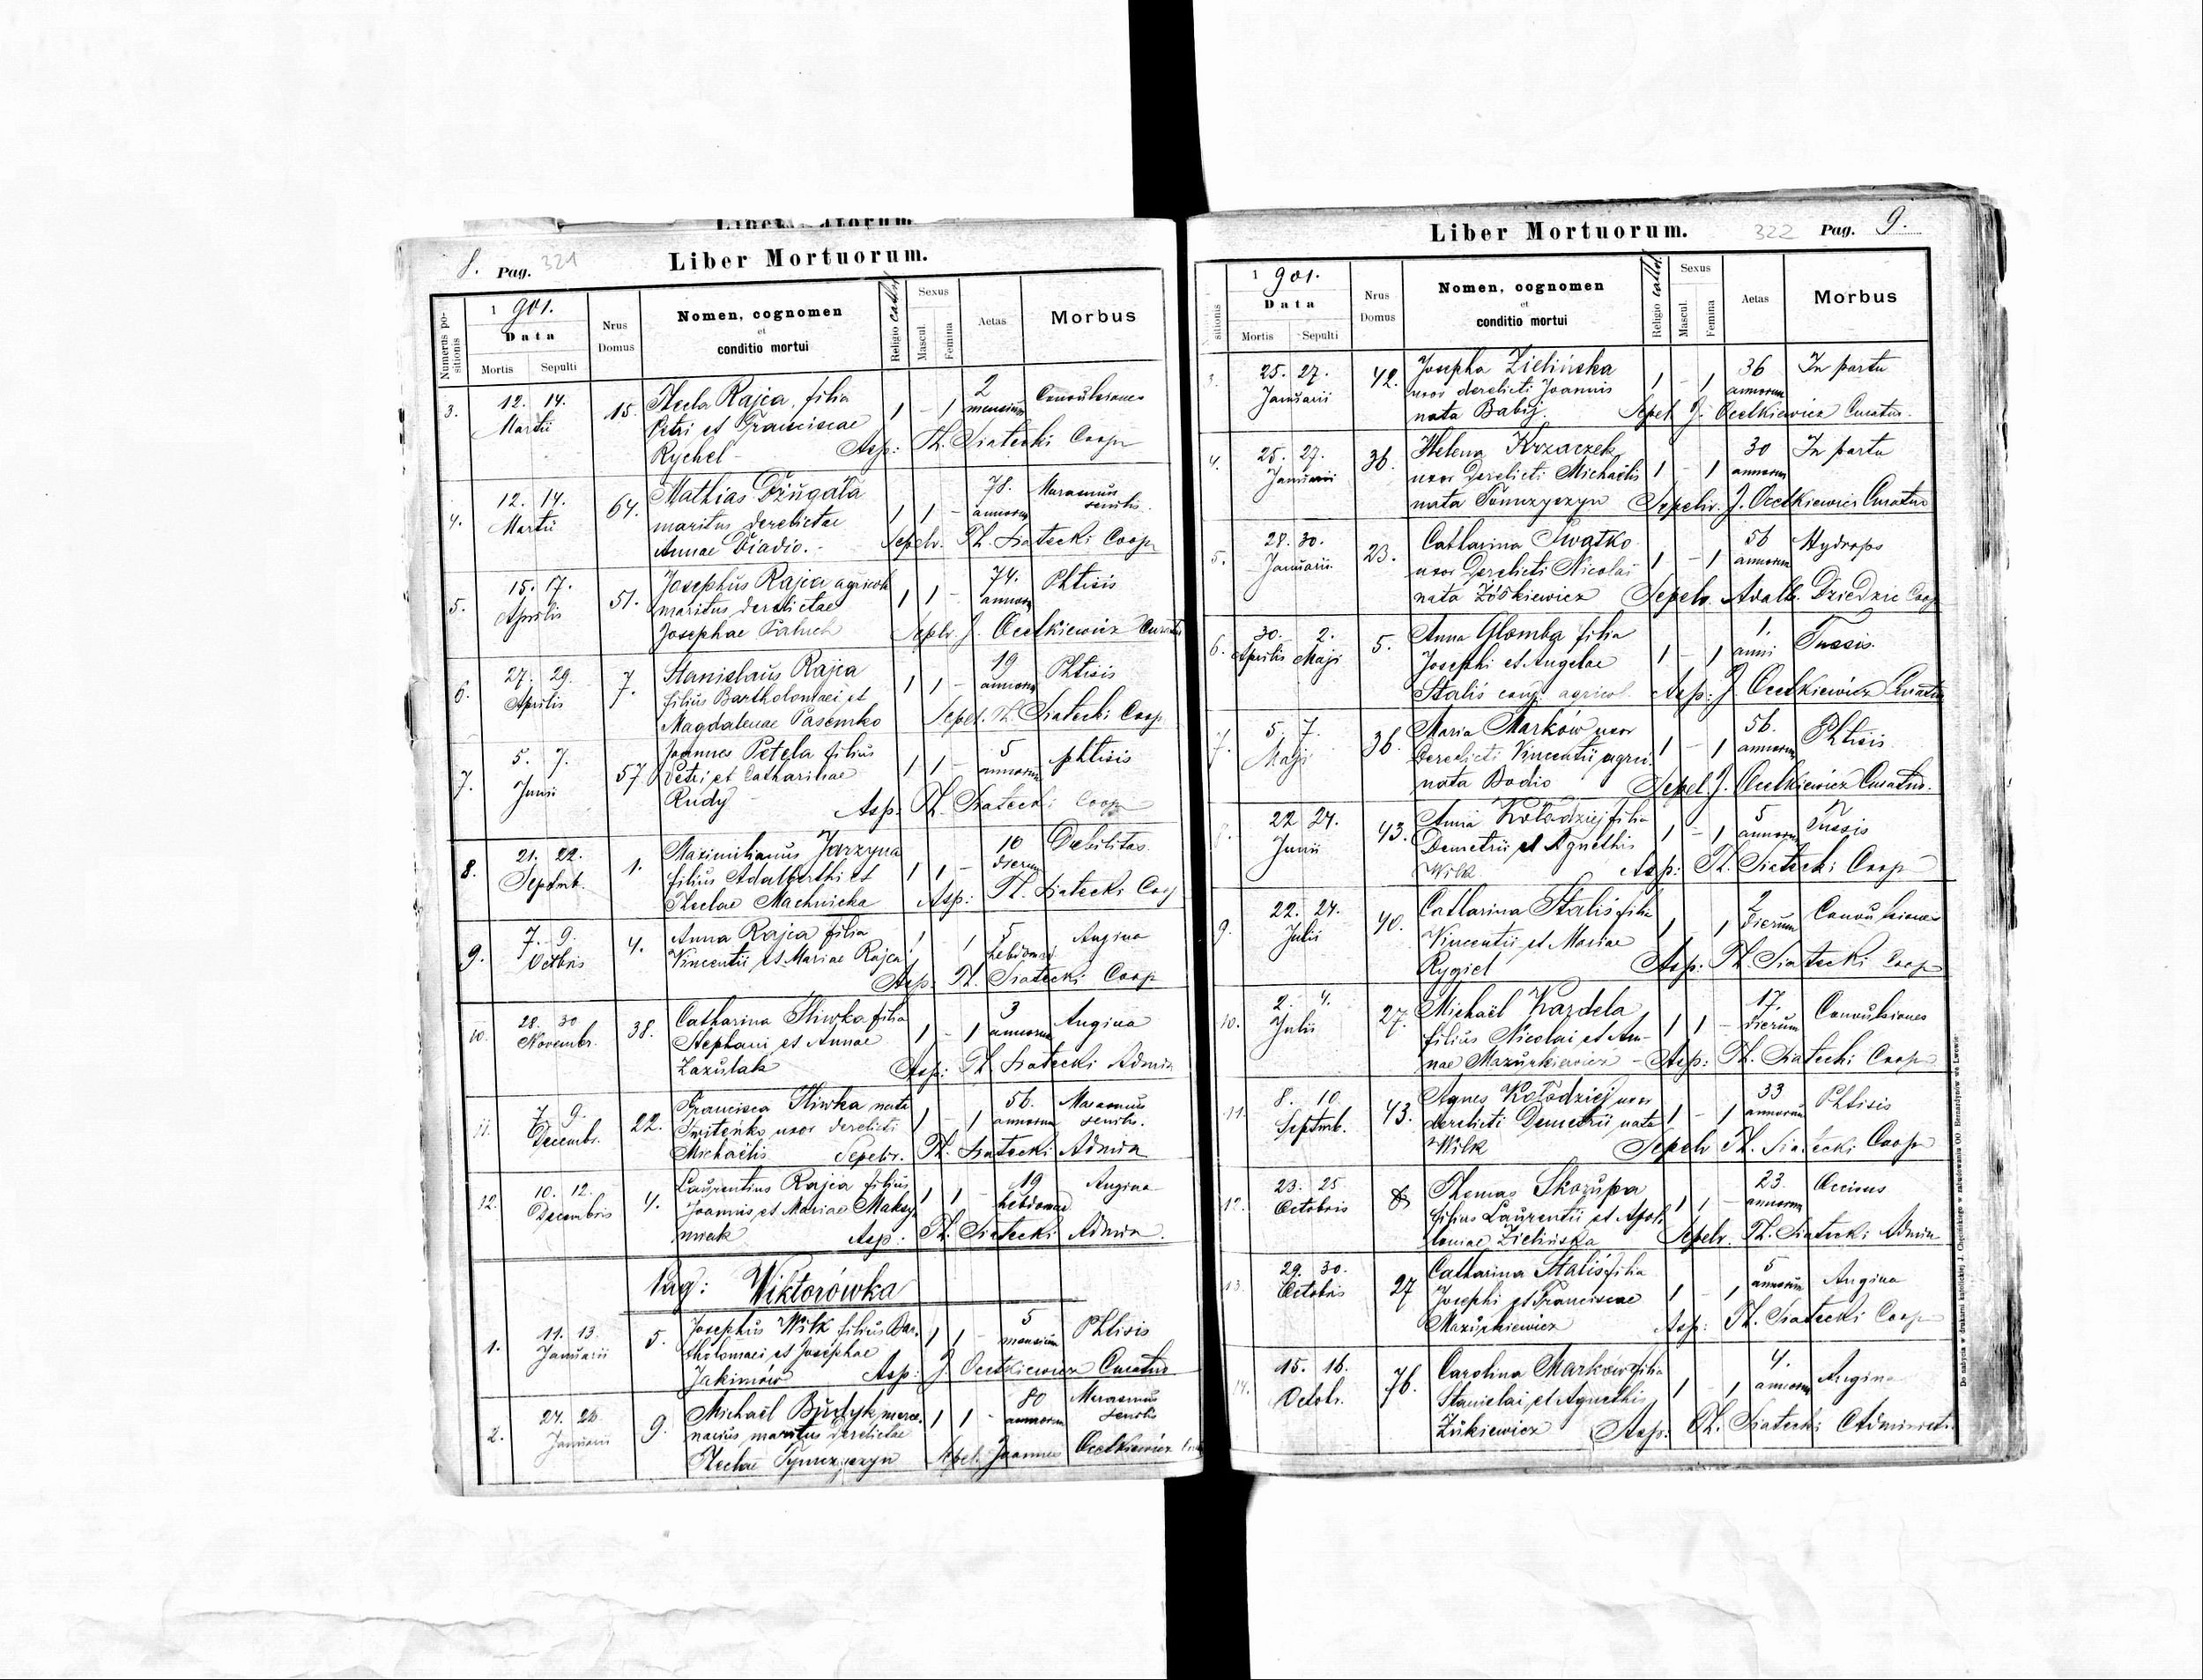 8. Pag. 321
Liber Mortuorum.
Numerus positionis
1901.
Data
Mortis Sepulti
Nrus Domus
Nomen, cognomen
et
conditio mortui
Religio cathol.
Sexus
Mascul. Femina
Aetas
Morbus
3. 12. 14. Martii 15. Thecla Rajca, filia 1 - 1 2 mensium Convulsiones
Petri et Franciscae
Rychel - Asp: Th. Siatecki Coop
4. 12. 14. Martii 64. Mathias 1 1 - 78. annorum Marasmus senilis.
maritus derelictae
Annae Sepelv. Th. Siatecki Coop
5. 15. 17. Aprilis 51. Josephus Rajca agricola 1 1 - 74. annorum Phtisis
maritus derelictae
Josephae Paluch Sepelv. J. Ocetkiewicz Curatus
6. 27. 29. Aprilis 7. Stanislaus Rajca 1 1 - 19 annorum Phtisis
filius Bartholomaei et
Magdalenae Pasemko Sepel. Th. Siatecki Coop
7. 5. 7. Junii 57. Joannes Petela filius 1 1 - 5 annorum phtisis
Petri et Catharinae
Rudy - Asp: Th. Siatecki Coop
8. 21. 22. Septemb. 1. Maximilianus Jarzyna 1 1 - 10 dierum Debilitas.
filius Adalberthi et
Theclae Machnicka Asp: Th. Siatecki Coop
9. 7. 9. Octbris 4. Anna Rajca filia 1 1 5 hebdomad Angina
Vincentii et Mariae Rajca
Asp: Th. Siatecki Coop
10. 28. 30 Novembr. 38. Catharina Śliwka filia 1 - 1 3 annorum Angina
Stephani et Annae
Zazulak Asp: Th. Siatecki Admin
11. 7. 9. Decembr. 22. Francisca Śliwka nata 1 - 1 56. annorum Marasmus senilis.
uxor derelicti
Michaëlis Sepelv. Th. Siatecki Admin
12. 10. 12. Decembris 4. Laurentius Rajca filius 1 1 - 19 hebdomad Angina
Joannis et Mariae Maksy-
miak Asp: Th. Siatecki Admin.
Pag: Wiktorówka
1. 11. 13. Januarii 5. Josephus Wilk filius Bar- 1 1 - 5 mensium Phtisis
tholomaei et Josephae
Jakimów Asp: J. Ocetkiewicz Curatus
2. 24. 26. Januarii 9. Michaël Budyk merce- 1 1 - 80 annorum Marasmus senilis
narius maritus derelictae
Theclae Tymczyszyn Sepel. Joannes Ocetkiewicz
Liber Mortuorum. 322 Pag. 9.
sitionis
1901.
Data
Mortis Sepulti
Nrus Domus
Nomen, cognomen
et
conditio mortui
Religio cathol.
Sexus
Mascul. Femina
Aetas
Morbus
3. 25. 27. Januarii 42. Josepha Zielińska 1 - 1 36 annorum In partu
uxor derelicti Joannis
nata Babij. Sepel J. Ocetkiewicz Curatus.
4. 25. 27. Januarii 36. Helena Krzaczek 1 - 1 30 annorum In partu
uxor derelicti Michaëlis
nata Tomczyszyn Sepeliv. J. Ocetkiewicz Curatus
5. 28. 30. Januarii 23. Catharina Iwaśko 1 - 1 56 annorum Hydrops
uxor derelicti Nicolai
nata Sepelv. Adalb. Dziedzic Coop
6. 30. Aprilis 2. Maji 5. Anna Glomba filia 1 - 1 1. anni Tussis.
Josephi et Angelae
Staliś conj. agricol. Asp: J. Ocetkiewicz Curatus
7. 5. 7. Maji 36. Maria Marków uxor 1 - 1 56. annorum Phtisis
derelicti Vincentii agric.
nata Bodio Sepel J. Ocetkiewicz Curatus.
8. 22 24. Junii 43. Anna Kołodziej filia 1 - 1 5 annorum Tussis
Demetrii et Agnethis
Wilk Asp: Th. Siatecki Coop
9. 22. 24. Julii 40. Catharina Staliś filia 1 1 2 dierum Convulsiones
Vincentii et Mariae
Rygiel Asp: Th. Siatecki Coop
10. 2. 4. Julii 27. Michaël Kardela 1 1 - 17. dierum Convulsiones
filius Nicolai et An-
nae Mazurkiewicz - Asp: Th. Siatecki Coop
11. 8. 10. Septmb. 43. Agnes Kołodziej uxor 1 - 1 33 annorum Phtisis
derelicti Demetrii nata
Wilk Sepelv Th. Siatecki Coop
12. 23. 25 Octobris 8 Thomas Skorupa 1 1 - 23. annorum Occisus
filius Laurentii et Apol-
loniae Zielińska Sepelv. Th. Siatecki Admin
13. 29. 30. Octobris 27 Catharina Staliś filia 1 - 1 5 annorum Angina
Josephi et Franciscae
Mazurkiewicz Asp: Th. Siatecki Coop
14. 15. 16. Octob. 76. Carolina Marków filia 1 - 1 4. annorum Angina
Stanislai et Agnethis
Żukiewicz Asp: Th. Siatecki Administ.
Do nabycia w drukarni katolickiej J. Chęcińskiego w zabudowaniu OO. Bernardynów we Lwowie.